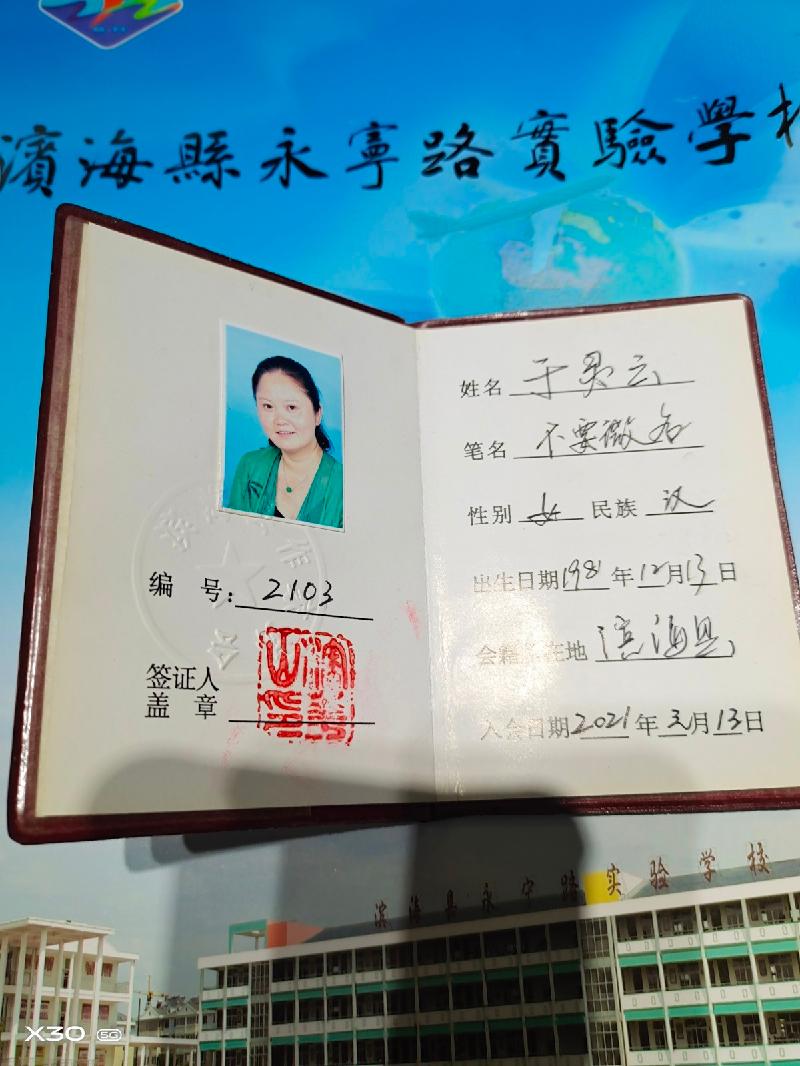 濱海縣永寧路實驗學校
姓名 于灵云
笔名 不要微名
性别 女 民族 汉
出生日期1981年12月13日
会籍所在地 滨海县
入会日期2021年3月13日
编 号: 2103
签证人
盖 章
滨海县永宁路实验学校
X30 5G